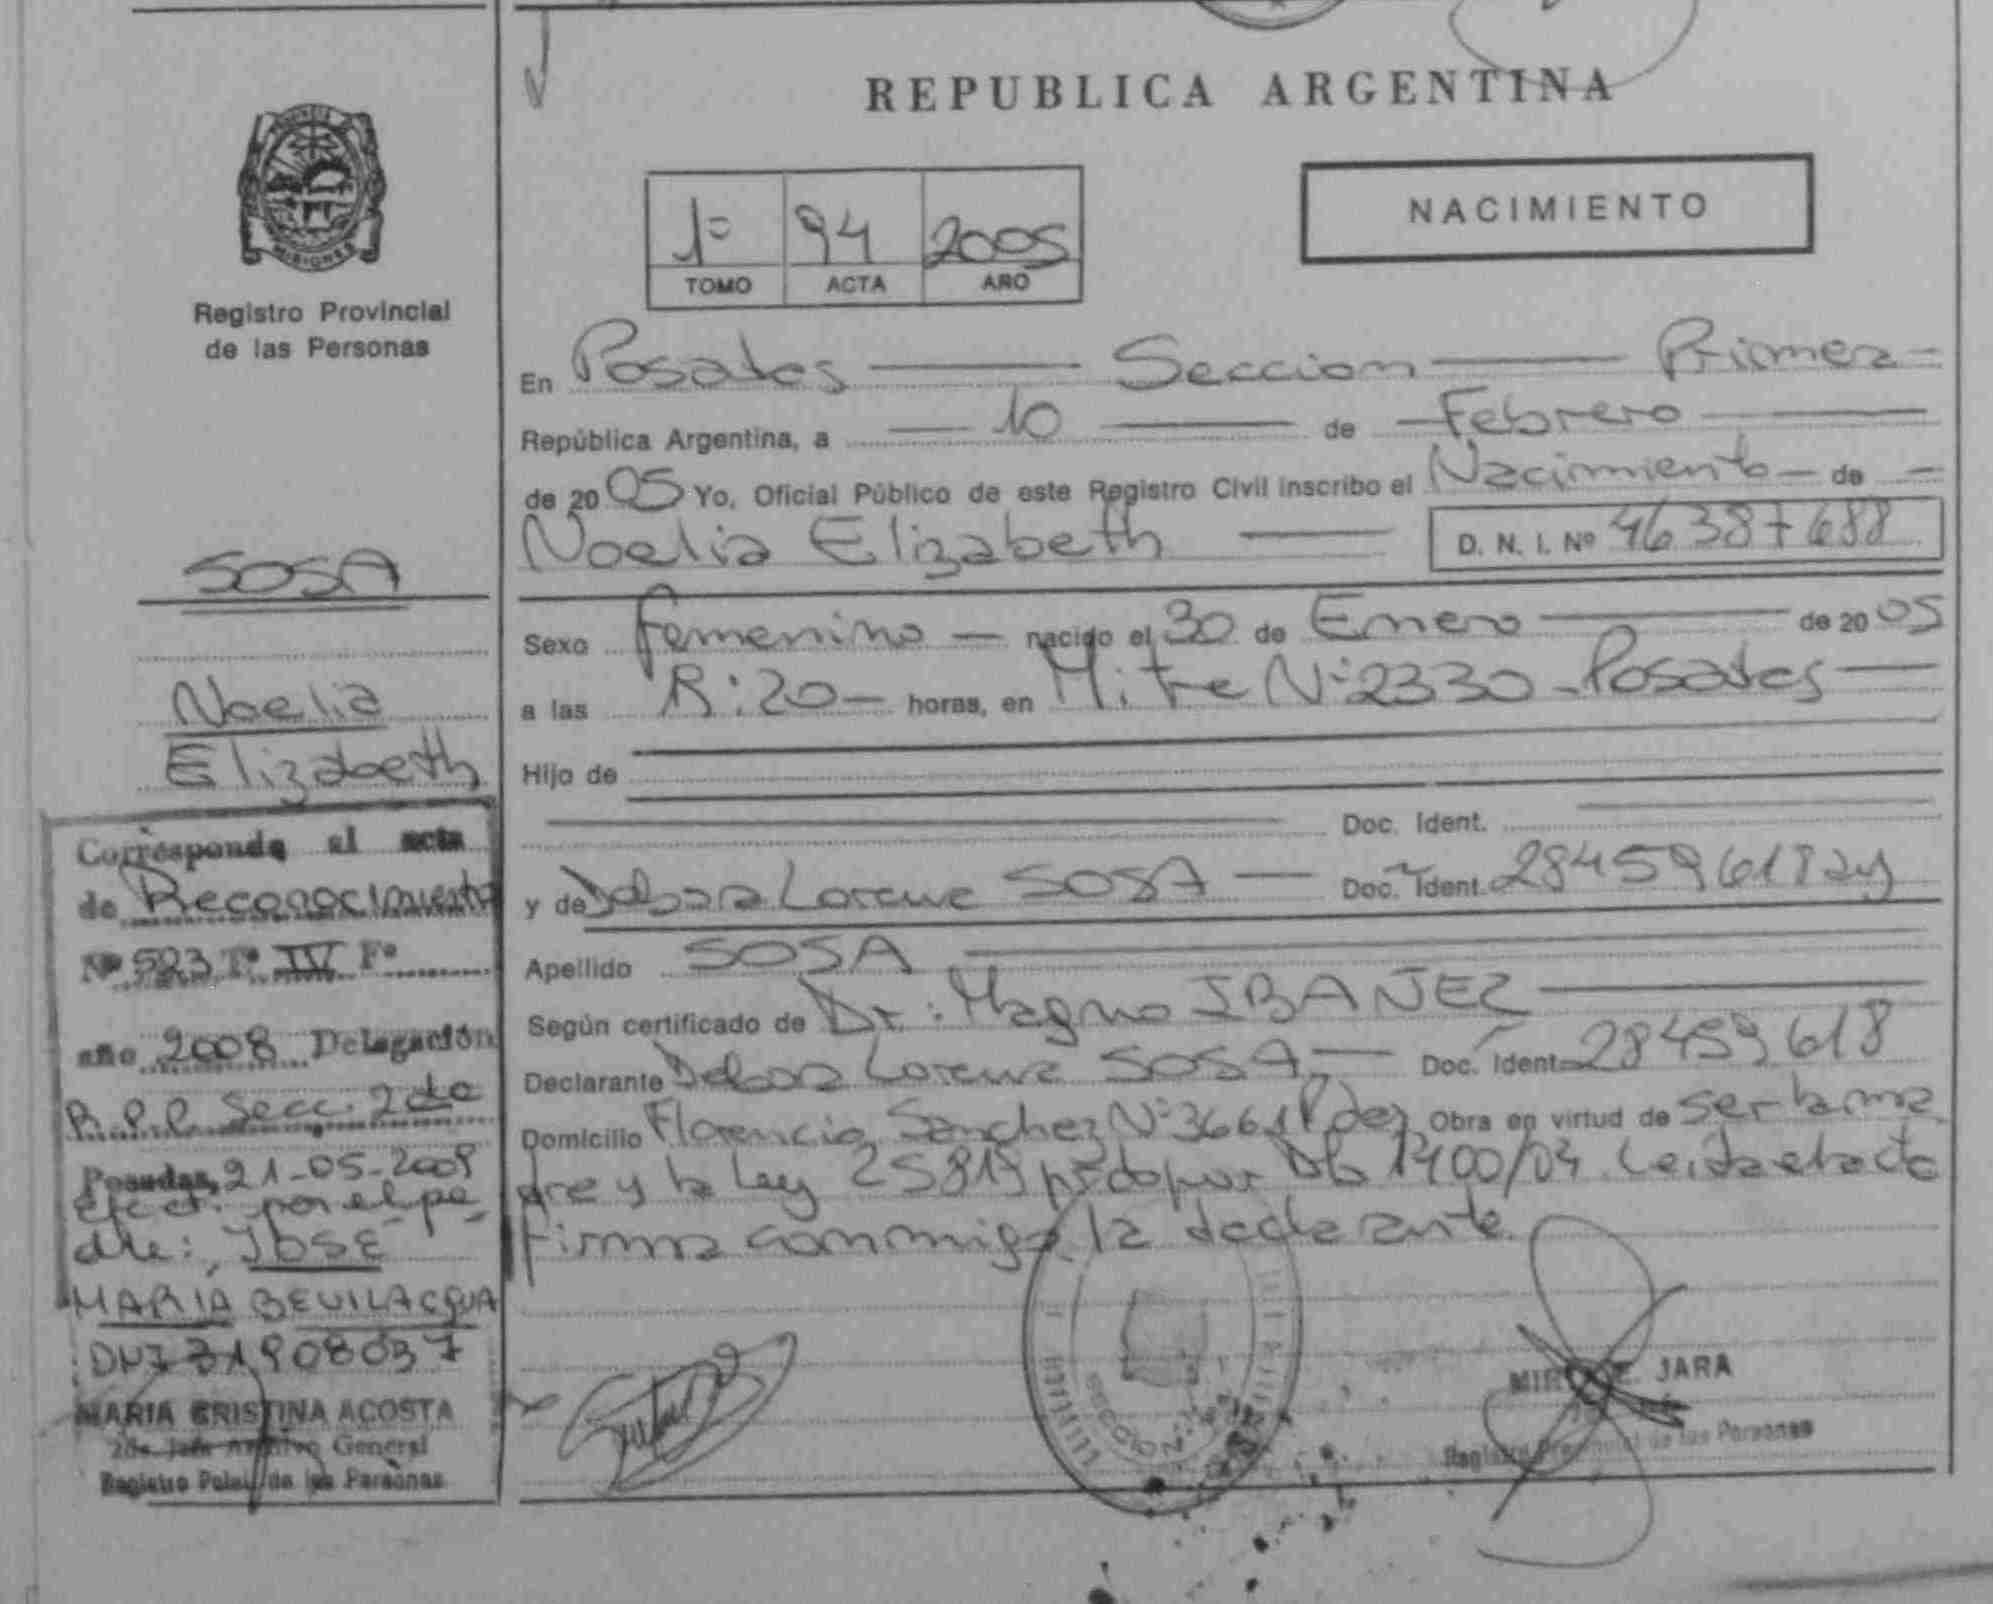 REPUBLICA ARGENTINA
NACIMIENTO
1º 94 2005
TOMO ACTA AÑO
MISIONES
Registro Provincial
de las Personas
SOSA
Noelia
Elizabeth
Corresponde al acta
de Reconocimiento
Nº 593 Tº IV Fº
año 2008 Delegación
R.P.P. Secc. 2da
Posadas, 21-05-2008
efect. por el pa-
dre: JOSÉ
MARIA BEVILACQUA
DNI 31908037
MARIA CRISTINA ACOSTA
2da. Jefe Archivo General
Registro Pcial. de las Personas
En Posadas Seccion Primera
República Argentina, a 10 de Febrero
de 2005 Yo, Oficial Público de este Registro Civil inscribo el Nacimiento de
Noelia Elizabeth D. N. I. Nº 46387688
Sexo femenino nacido el 30 de Enero de 2005
a las :20 horas, en Mitre Nº 2330 - Posadas
Hijo de
Doc. Ident.
y de Debora Lorena SOSA Doc. Ident. 28459618
Apellido SOSA
Según certificado de Dr: Magno IBAÑEZ
Declarante Debora Lorena SOSA Doc. Ident. 28459618
Domicilio Florencio Sanchez Nº 3661 Pdas Obra en virtud de ser la ma
dre y la Ley 25819 por 1400/04. Leída el acta
firma conmigo la declarante.
SECCION
JARA
Registro Provincial de las Personas